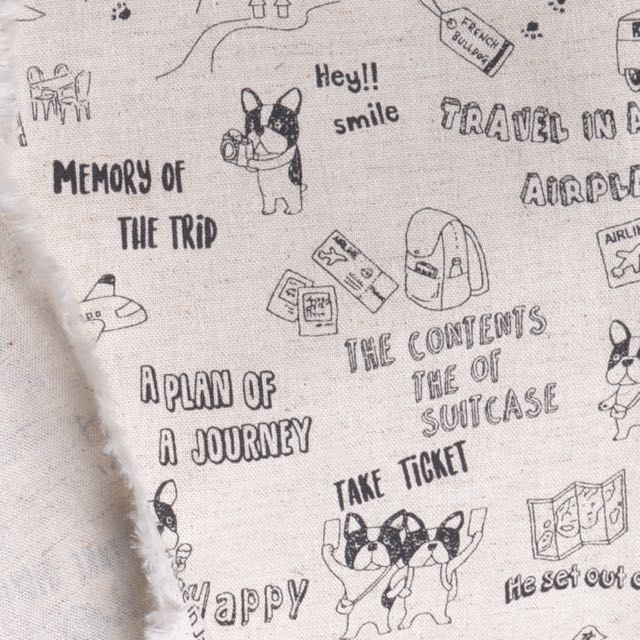 FRENCH
BULLDOG
Hey!!
smile
TRAVEL IN A
AIRPL
MEMORY OF
THE TRIP
AIRLIN
THE CONTENTS
THE OF
SUITCASE
A PLAN OF
A JOURNEY
TAKE TICKET
Happy
He set out o